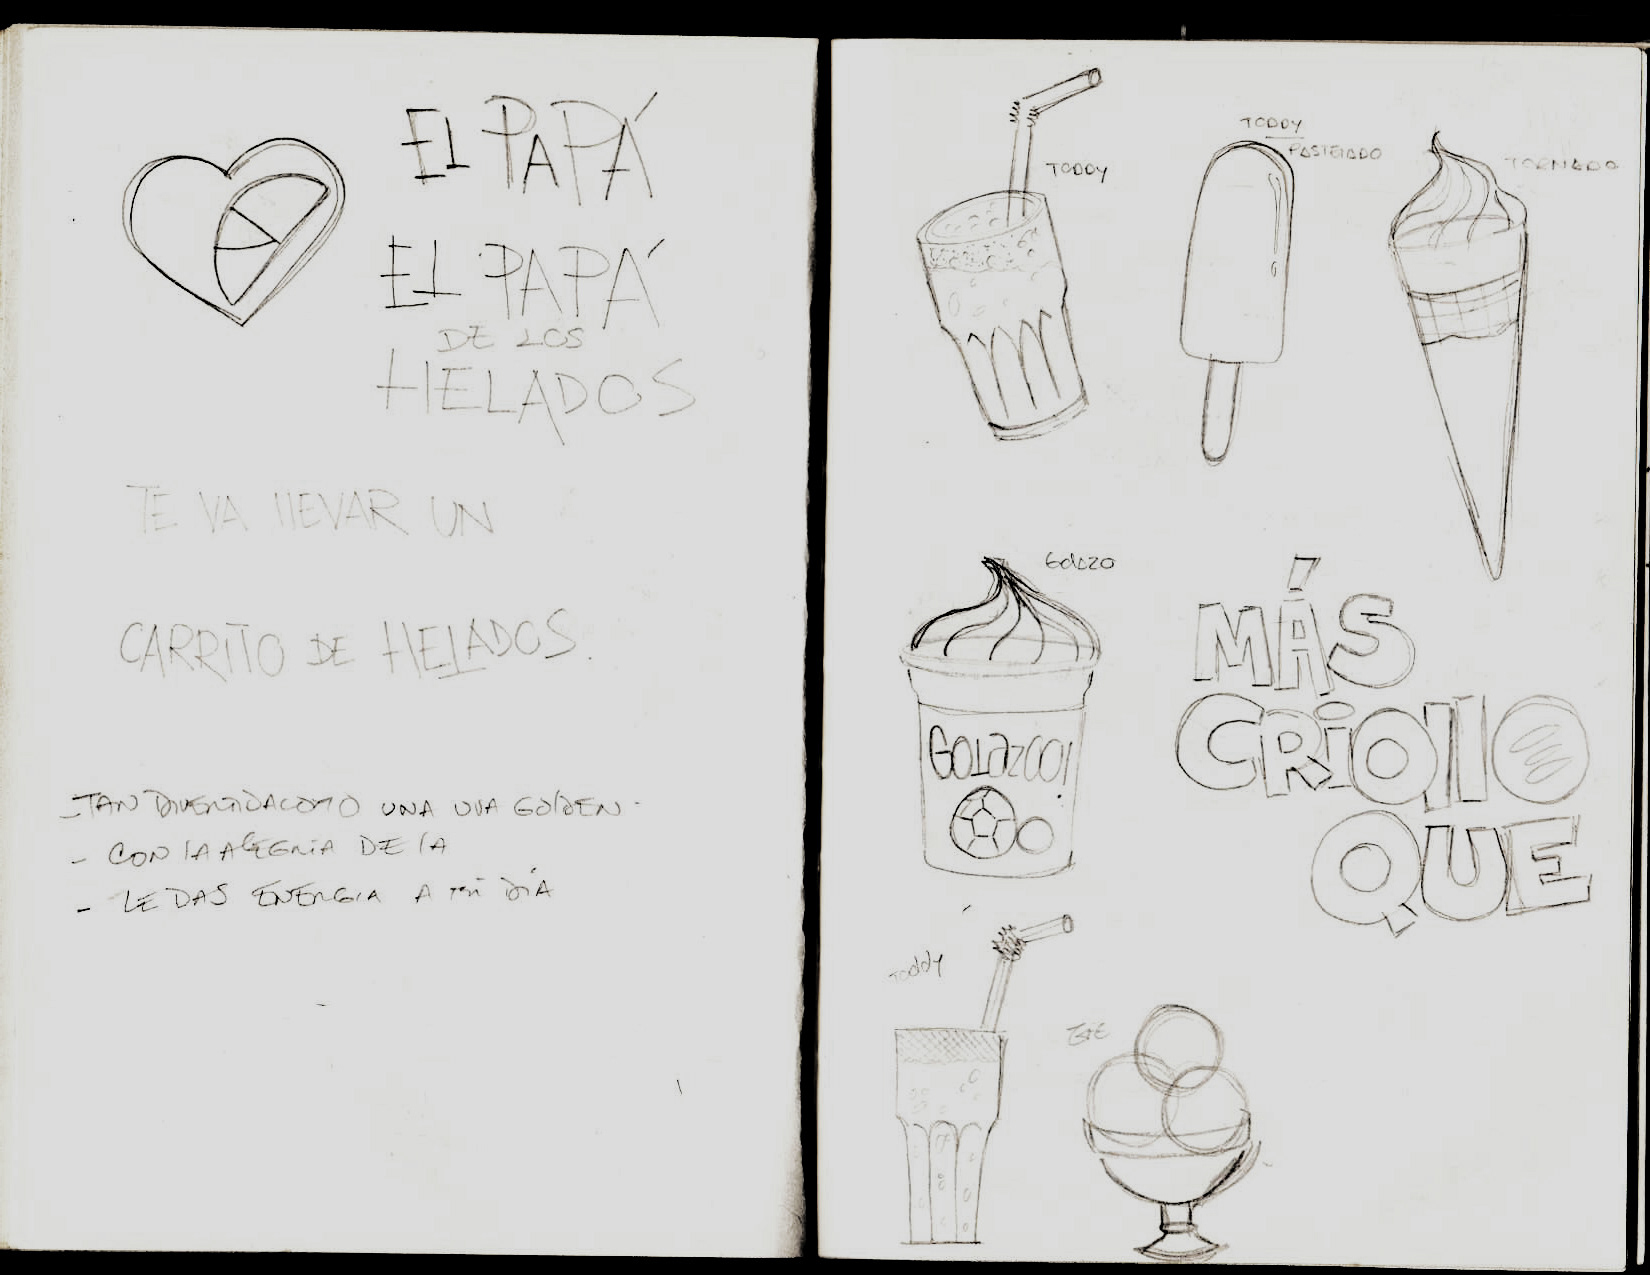 EL PAPÁ
EL PAPÁ
DE LOS
HELADOS
TE VA llEVAR UN
CARRITO DE HELADOS.
- TAN DIVERTIDA COMO UNA UVA GOLDEN.
- CON LA ALEGRIA DE LA
- LE DAS ENERGIA A MI DÍA
TODDY
TODDY
PASTELADO
TORNADO
GOLAZO
GOLAZOO!
MÁS
CRiOllO
QUE
TODDY